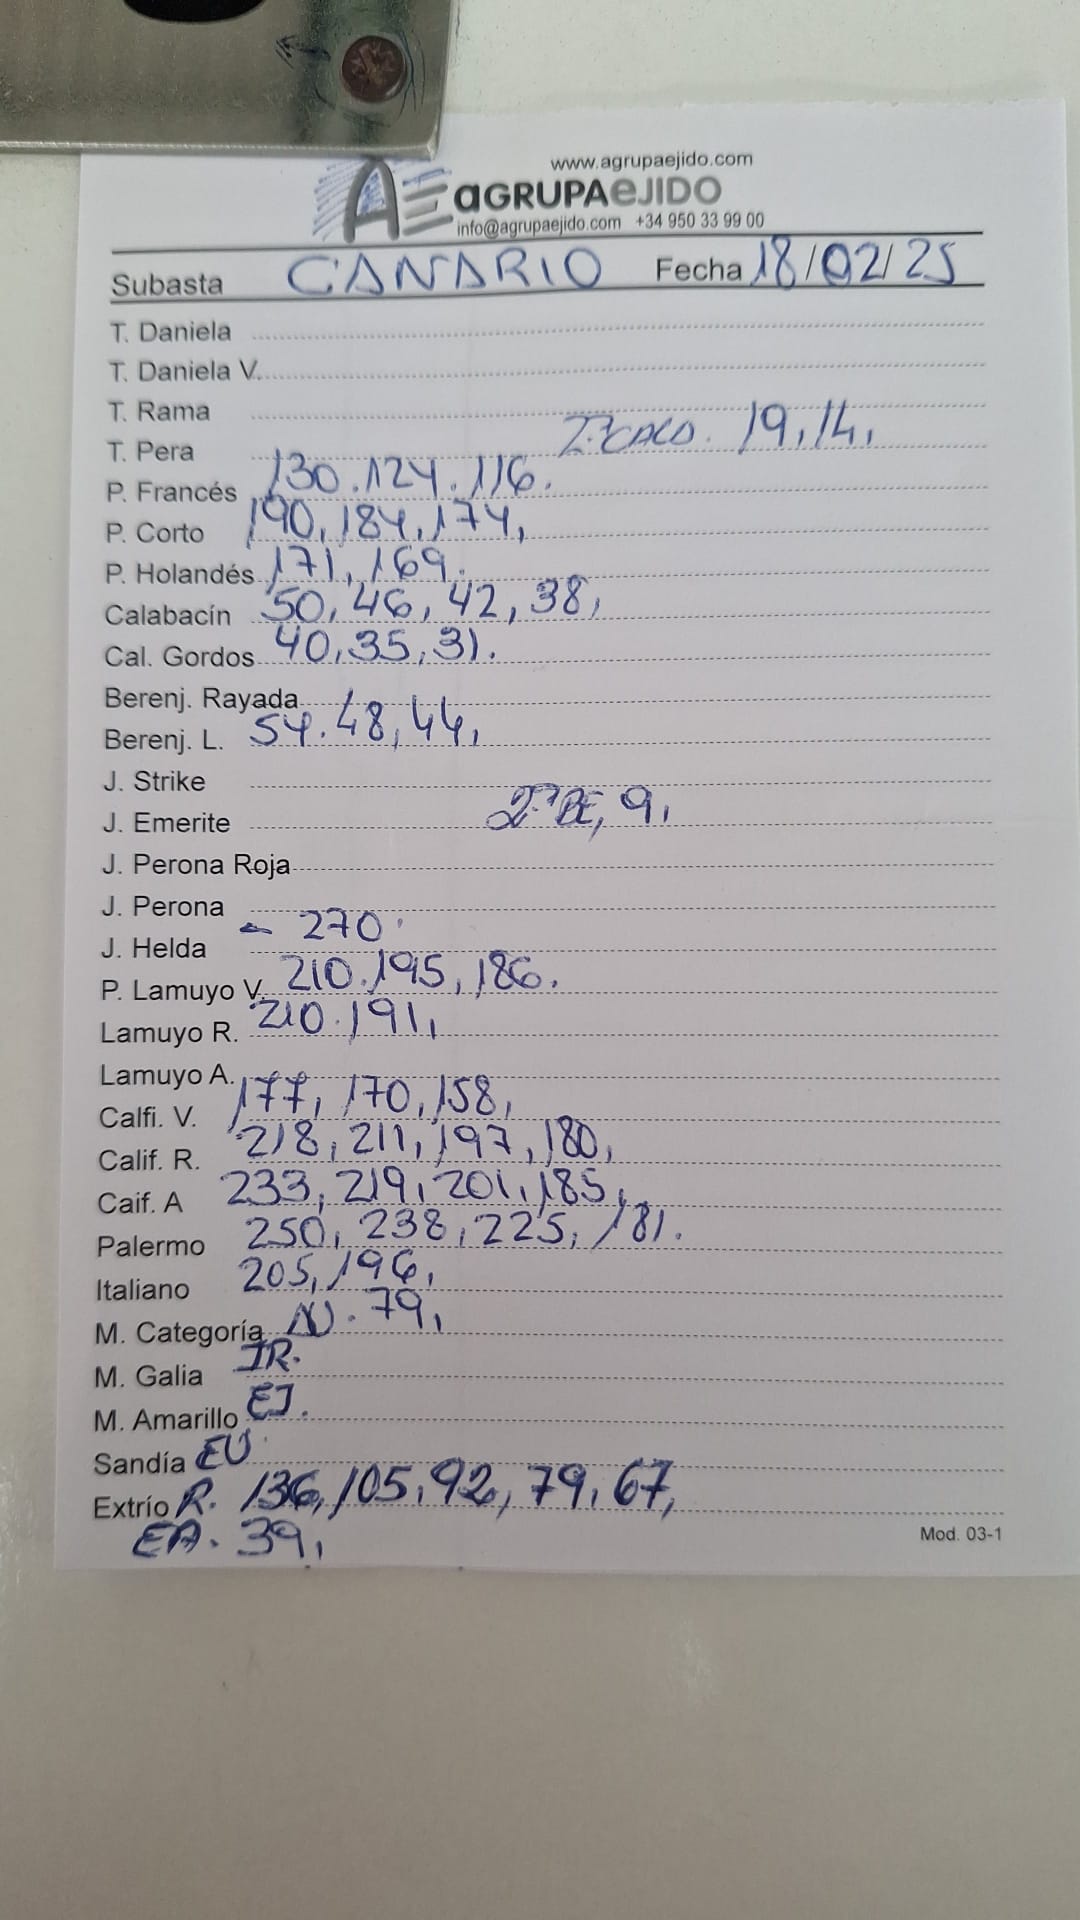 www.agrupaejido.com
AE aGRUPAeJIDO
info@agrupaejido.com +34 950 33 99 00
Subasta CANARIO Fecha 18/02/25
T. Daniela
T. Daniela V.
T. Rama
T. Pera 2ª CALD. 19, 14,
P. Francés 130. 124. 116.
P. Corto 190, 184, 174,
P. Holandés 171, 169.
Calabacín 50, 46, 42, 38,
Cal. Gordos 40, 35, 31.
Berenj. Rayada
Berenj. L. 54. 48, 44,
J. Strike
J. Emerite 2ª BE, 9,
J. Perona Roja
J. Perona
J. Helda - 270.
P. Lamuyo V. 210. 195, 186.
Lamuyo R. 210. 191,
Lamuyo A.
Calfi. V. 177, 170, 158,
Calif. R. 218, 211, 197, 180,
Caif. A 233, 219, 201, 185,
Palermo 250, 238, 225, 181.
Italiano 205, 196,
M. Categoría N. 79,
M. Galia JR.
M. Amarillo EJ.
Sandía EU
Extrío R. 136, 105, 92, 79, 67,
EA. 39,
Mod. 03-1